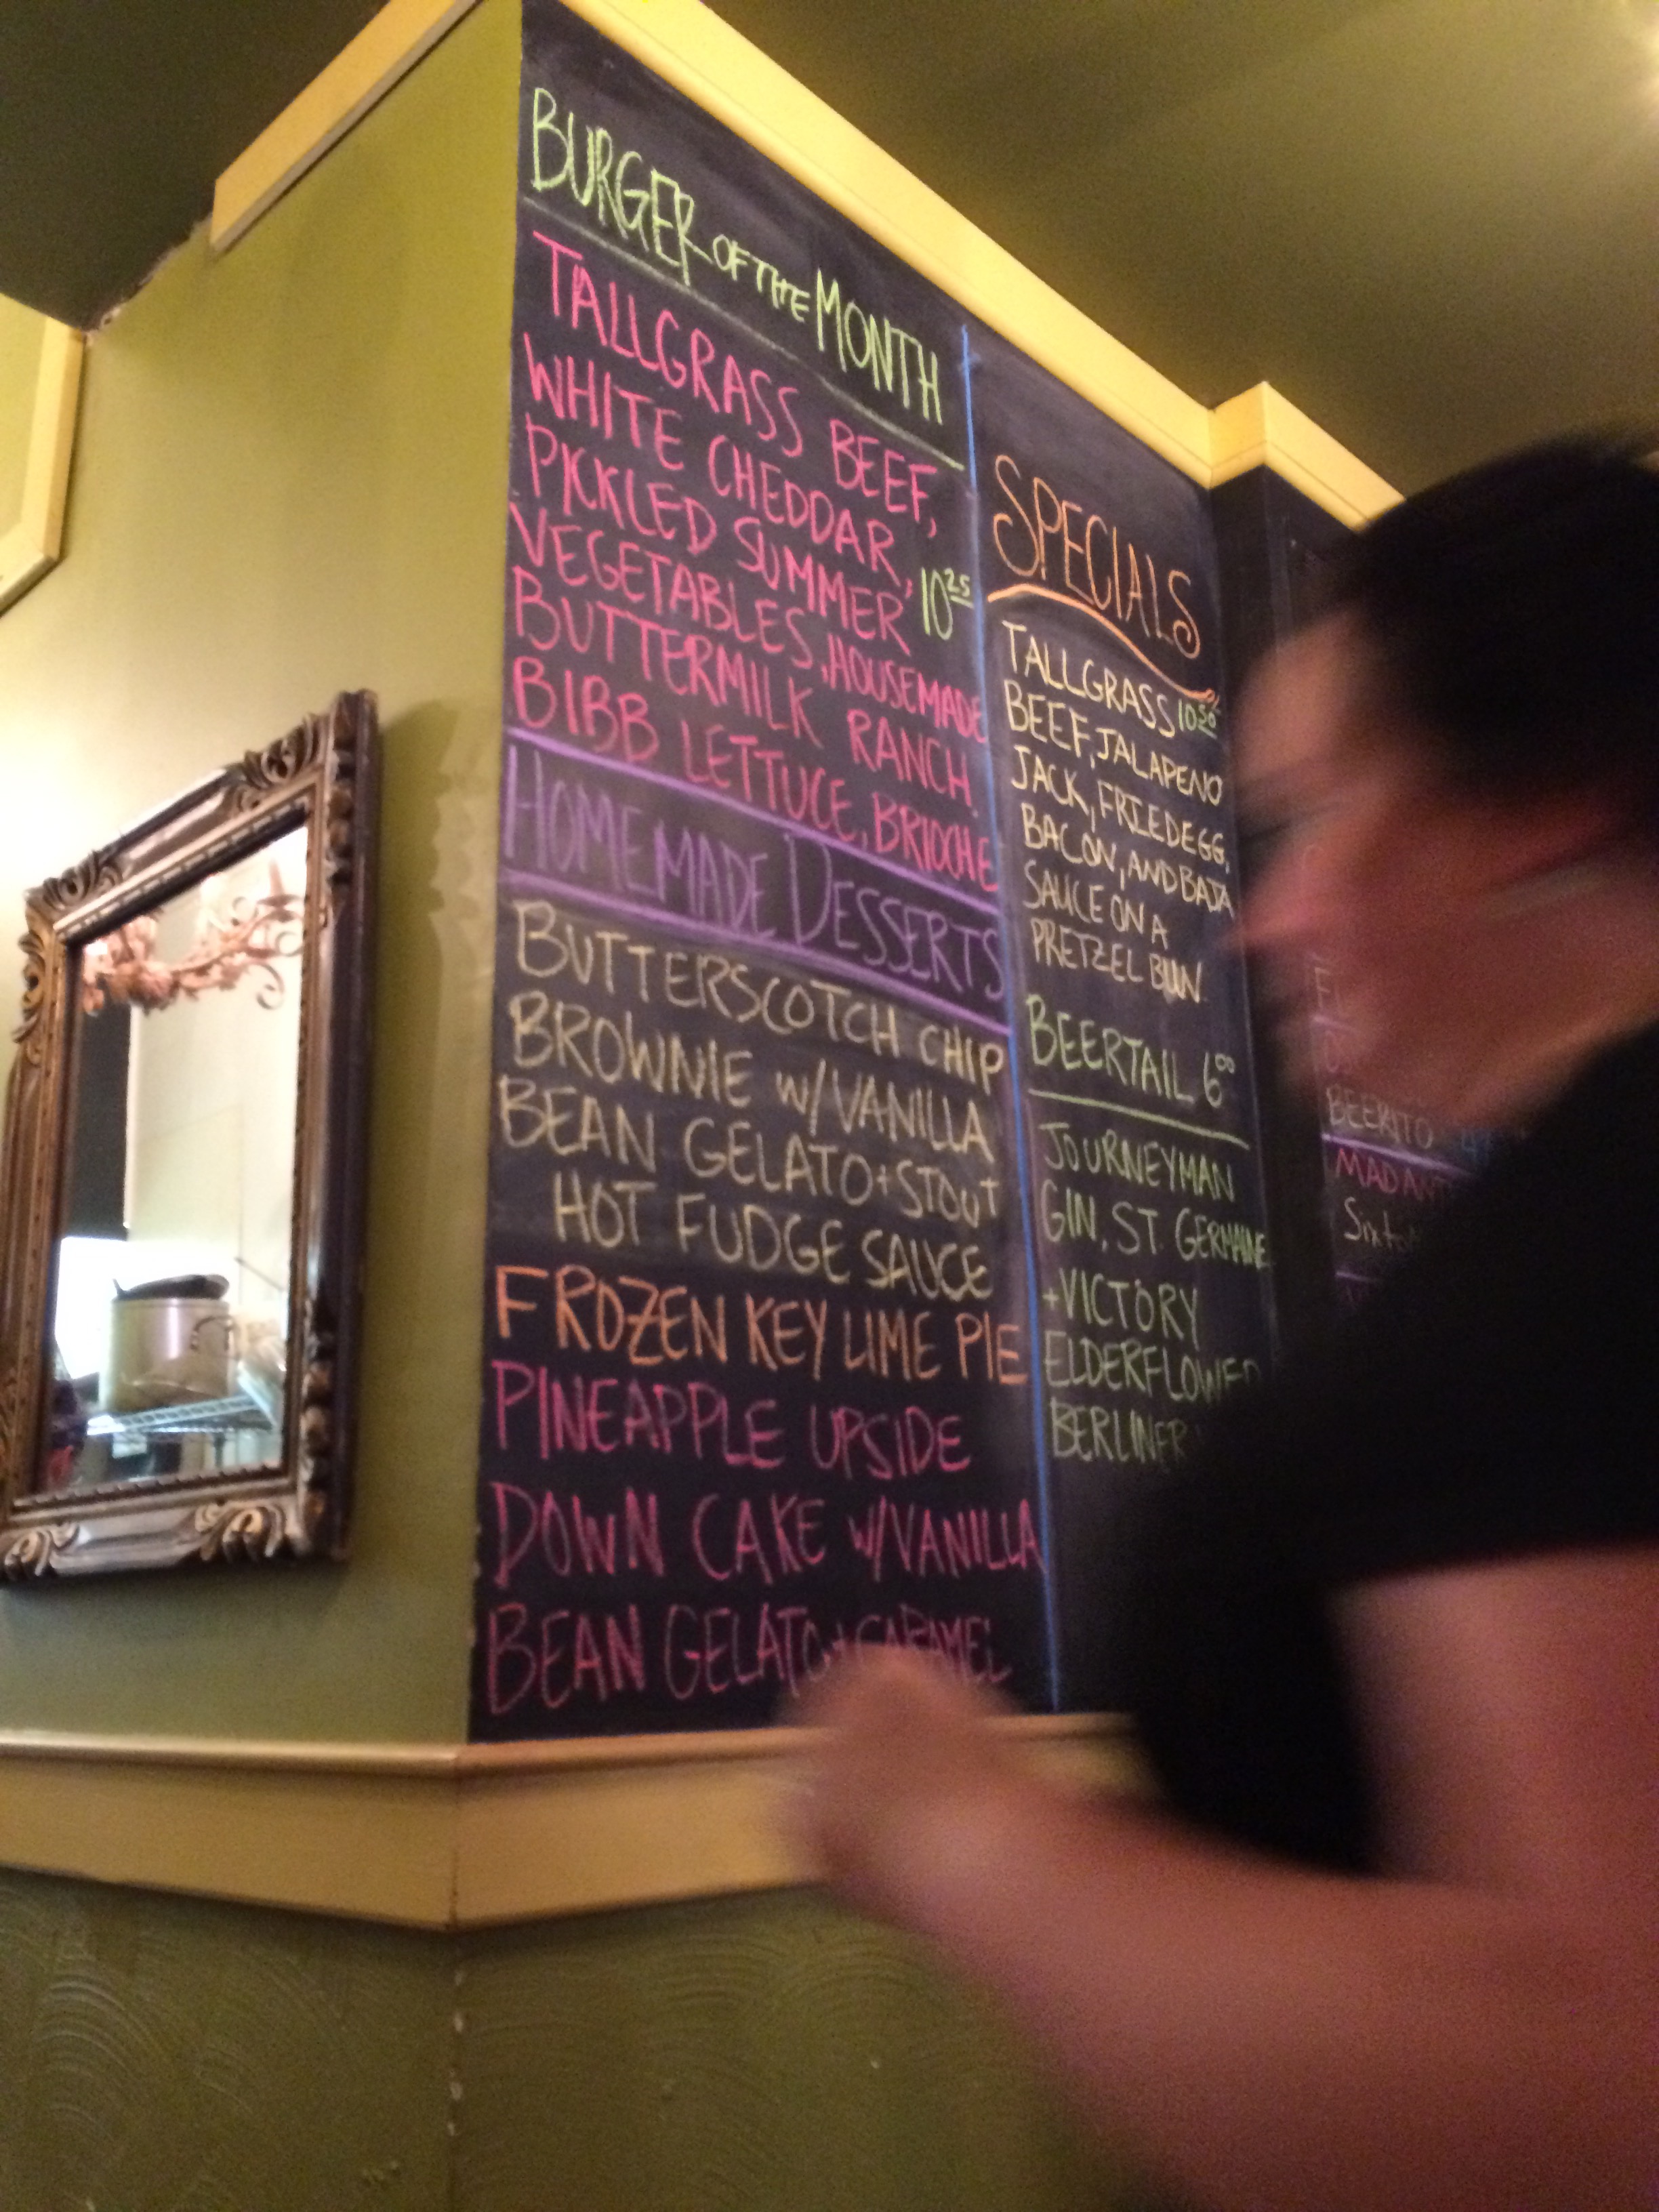 BURGER OF THE MONTH
TALLGRASS BEEF,
WHITE CHEDDAR,
PICKLED SUMMER 10 25
VEGETABLES, HOUSEMADE
BUTTERMILK RANCH,
BIBB LETTUCE, BRIOCHE
HOMEMADE DESSERTS
BUTTERSCOTCH CHIP
BROWNIE W/VANILLA
BEAN GELATO + STOUT
HOT FUDGE SAUCE
FROZEN KEY LIME PIE
PINEAPPLE UPSIDE
DOWN CAKE W/VANILLA
BEAN GELATO + CARAMEL
SPECIALS
TALLGRASS 10 50
BEEF, JALAPENO
JACK, FRIED EGG,
BACON, AND BAJA
SAUCE ON A
PRETZEL BUN
BEERTAIL 6 00
JOURNEYMAN
GIN, ST. GERMAINE
+ VICTORY
ELDERFLOWER
BERLINER
BEERITO